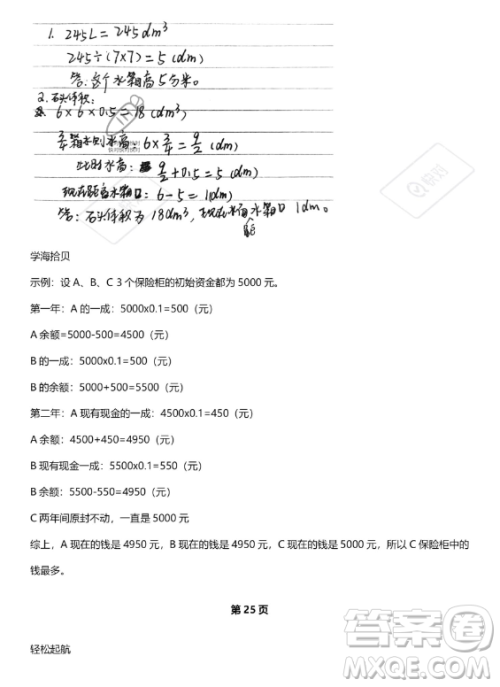 1. 245L=245dm³
245÷(7×7)=5(dm)
答:这个水箱高5分米。
2. 石头体积:
6×6×0.5=18(dm³)
3/4箱水则水高:6×3/4=9/2(dm)
此时水高:9/2+0.5=5(dm)
现在距离水箱口:6-5=1(dm)
答:石头体积为18dm³,现在水面距水箱口1dm。
学海拾贝
示例:设 A、B、C 3 个保险柜的初始资金都为 5000 元。
第一年:A 的一成:5000x0.1=500(元)
A 余额=5000-500=4500(元)
B 的一成:5000x0.1=500(元)
B 的余额:5000+500=5500(元)
第二年:A 现有现金的一成:4500x0.1=450(元)
A 余额:4500+450=4950(元)
B 现有现金一成:5500x0.1=550(元)
B 余额:5500-550=4950(元)
C 两年间原封不动,一直是 5000 元
综上,A 现在的钱是 4950 元,B 现在的钱是 4950 元,C 现在的钱是 5000 元,所以 C 保险柜中的
钱最多。
第 25 页
轻松起航
答案圈
MXQE.COM